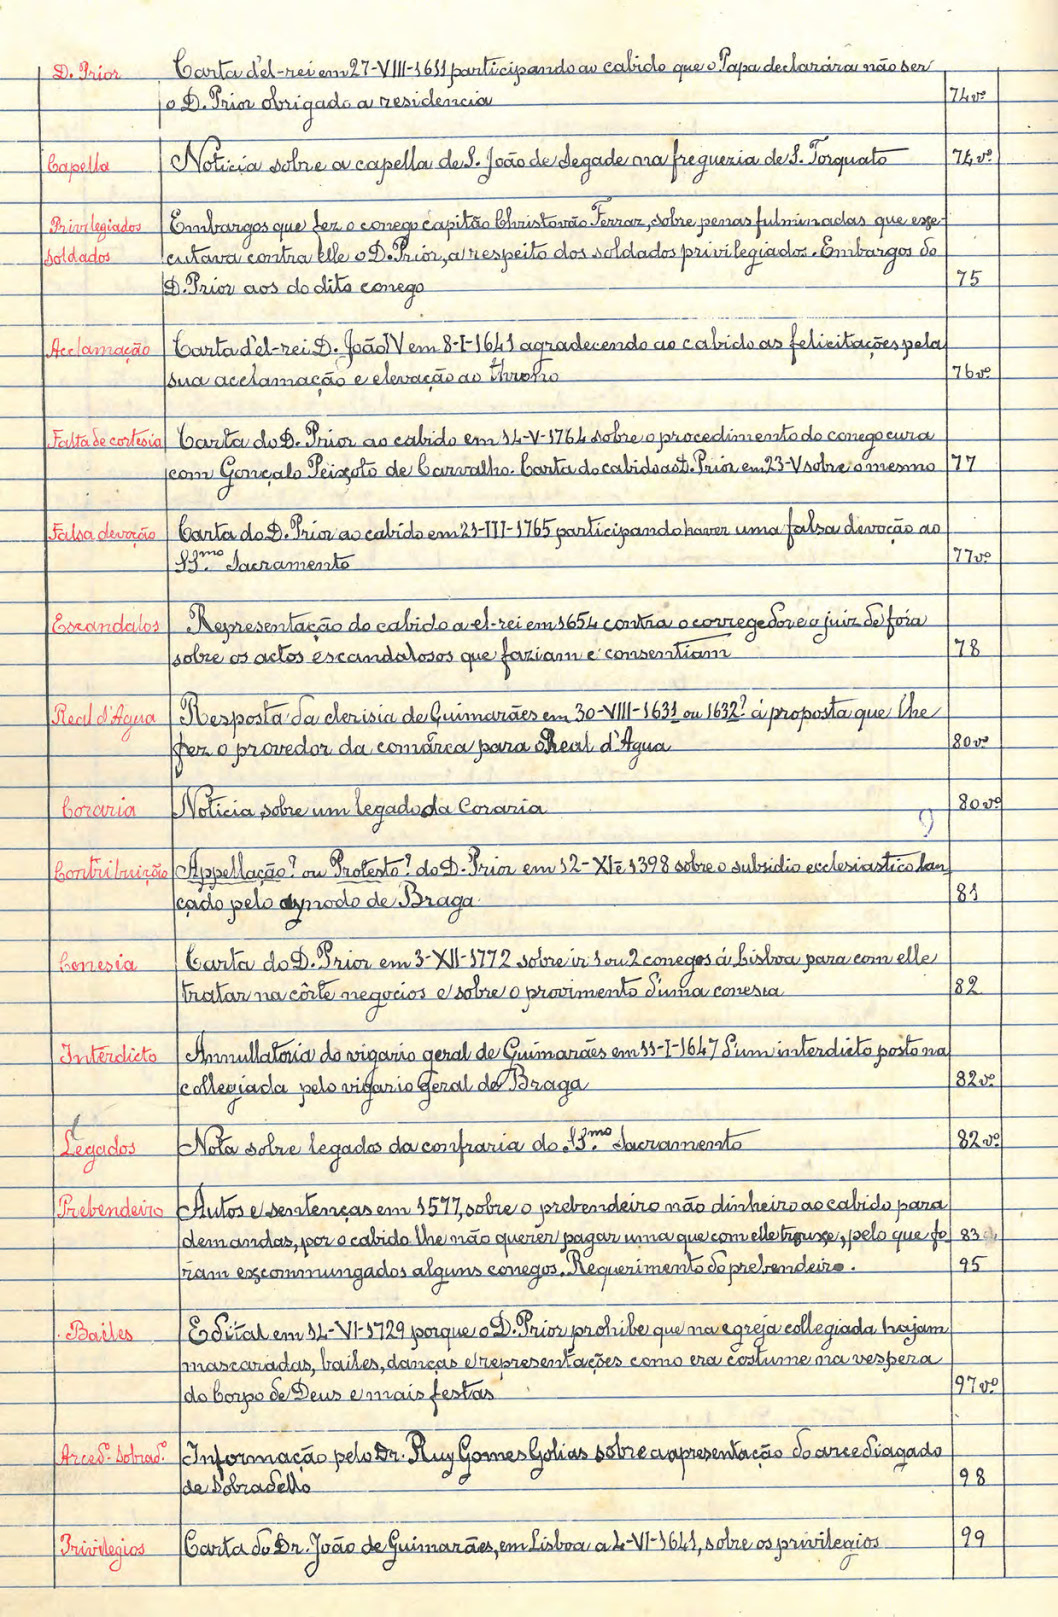 D. Prior Carta d'el-rei em 27-VIII-1611 participando ao cabido que o Papa declarára não ser
o D. Prior obrigado a residencia 74vº
Capella Noticia sobre a capella de S. João de Segade na freguezia de S. Torquato 74vº
Privilegiados Embargos que fez o conego capitão Christovão Ferraz, sobre penas fulminadas que exe-
soldados cutava contra elle o D. Prior, a respeito dos soldados privilegiados. Embargos do
D. Prior aos do dito conego 75
Acclamação Carta d'el-rei D. João IV em 8-I-1641 agradecendo ao cabido as felicitações pela
sua acclamação e elevação ao throno 76vº
Falta de cortesia Carta do D. Prior ao cabido em 14-V-1764 sobre o procedimento do conego cura
com Gonçalo Peixoto de Carvalho. Carta do cabido ao D. Prior em 23-V sobre o mesmo 77
Falsa devoção Carta do D. Prior ao cabido em 21-III-1765 participando haver uma falsa devoção ao
SS.mo Sacramento 77vº
Escandalos Representação do cabido a el-rei em 1654 contra o corregedor e o juiz de fóra
sobre os actos escandalosos que faziam e consentiam 78
Real d'Agua Resposta da clerisia de Guimarães em 30-VIII-1631 ou 1632? á proposta que lhe
fez o provedor da comárca para o Real d'Agua 80vº
Coraria Noticia sobre um legado da Coraria 80vº
Contribuição Appellação? ou Protesto? do D. Prior em 12-XI-1398 sobre o subsidio ecclesiastico lan
çado pelo synodo de Braga 81
Conesia Carta do D. Prior em 3-XII-1772 sobre ir 1 ou 2 conegos á Lisboa para com elle
tratar na côrte negocios e sobre o provimento d'uma conesia 82
Interdicto Annullatoria do vigario geral de Guimarães em 11-I-1647 d'um interdicto posto na
collegiada pelo vigario geral de Braga 82vº
Legados Nota sobre legados da confraria do SS.mo Sacramento 82vº
Prebendeiro Autos e sentenças em 1577, sobre o prebendeiro não dinheiro ao cabido para
demandas, por o cabido lhe não querer pagar uma que com elle trouxe, pelo que fo 83
ram excommungados alguns conegos. Requerimento do prebendeiro. 95
Bailes Edital em 14-VI-1729 porque o D. Prior prohibe que na egreja collegiada hajam
mascaradas, bailes, danças e representações como era costume na vespera
do Corpo de Deus e mais festas 97vº
Arced.º Sobrad.º Informação pelo Dr. Ruy Gomes Golias sobre a apresentação do arcediagado
de Sobradello 98
Privilegios Carta do Dr. João de Guimarães, em Lisboa a 4-VI-1641, sobre os privilegios 99